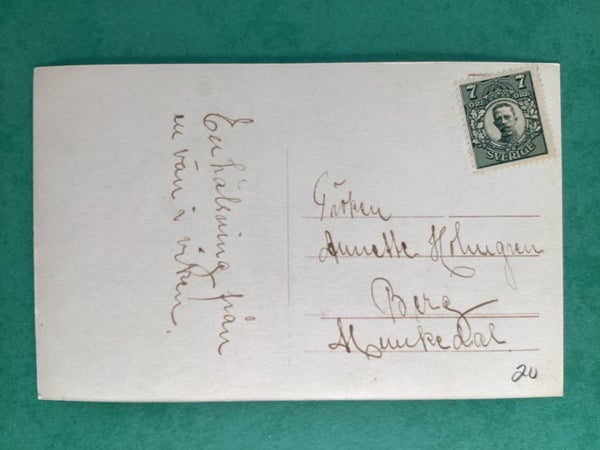 En hälsning från
en vän i viken.
7 7
ÖRE ÖRE
SVERIGE
Fröken
Annette Holmgren
Berg
Munkedal
20